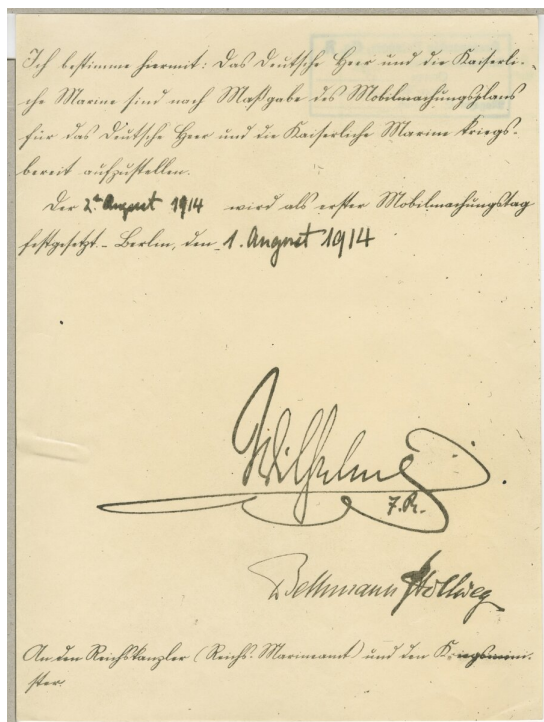 Ich bestimme hiermit: Das Deutsche Heer und die Kaiserli-
che Marine sind nach Maßgabe des Mobilmachungsplans
für das Deutsche Heer und die Kaiserliche Marine kriegs-
bereit aufzustellen.
Der 2te August 1914 wird als erster Mobilmachungstag
festgesetzt. – Berlin, den 1. August 1914
Wilhelm
I.R.
Bethmann Hollweg
An den Reichskanzler (Reichs-Marineamt) und den Kriegsmini-
ster.